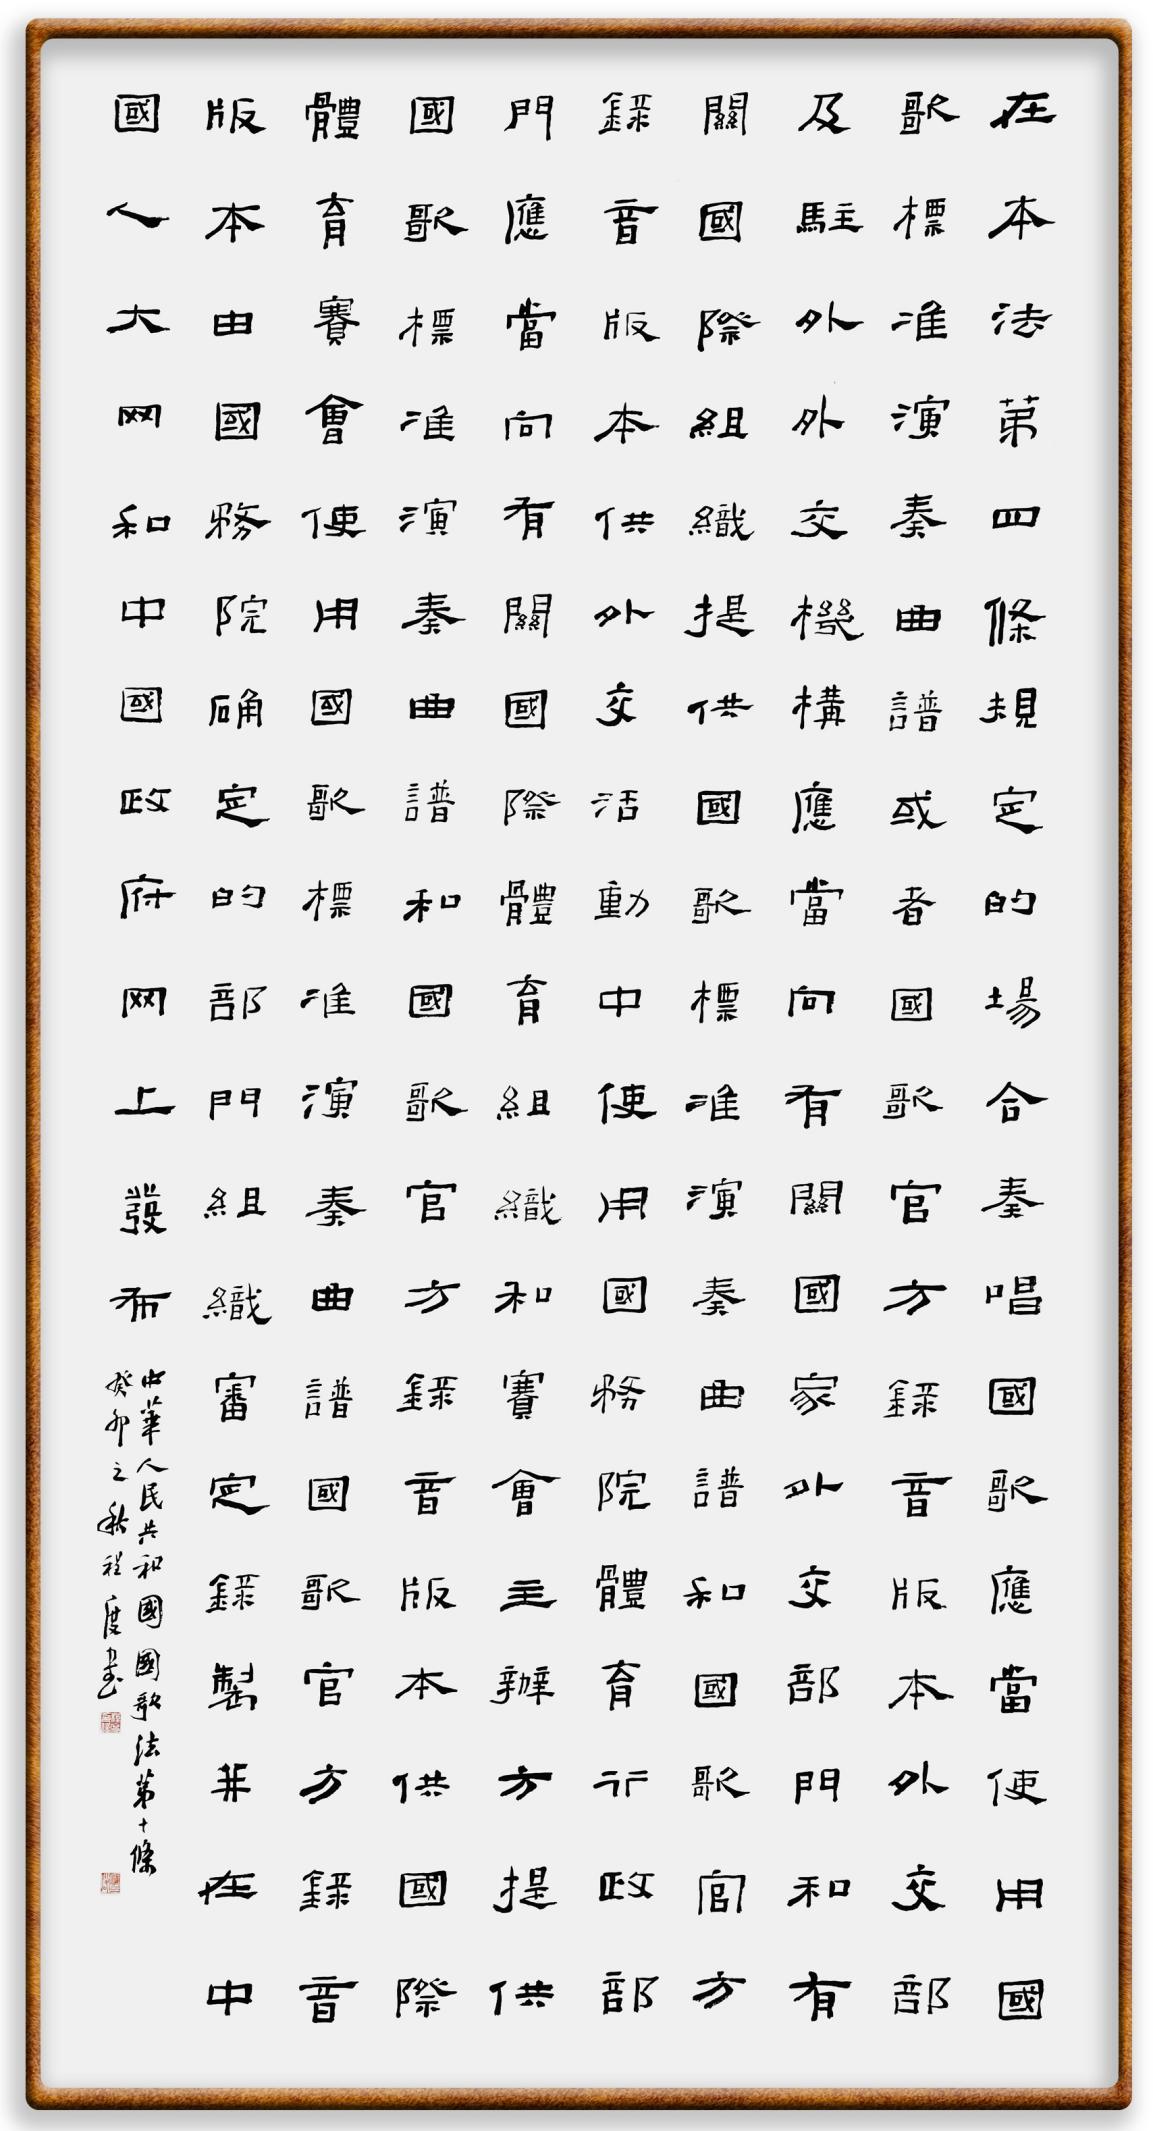 在本法苐四條規定的場合奏唱國歌應當使用國
歌標准演奏曲譜或者國歌官方錄音版本外交部
及駐外外交機構應當向有關國家外交部門和有
關國際組織提供國歌標准演奏曲譜和國歌官方
錄音版本供外交活動中使用國務院體育行政部
門應當向有關國際體育組織和賽會主辦方提供
國歌標准演奏曲譜和國歌官方錄音版本供國際
體育賽會使用國歌標准演奏曲譜國歌官方錄音
版本由國務院确定的部門組織審定錄製并在中
國人大网和中國政府网上發布
中華人民共和國國歌法苐十條
癸卯之秋程度書